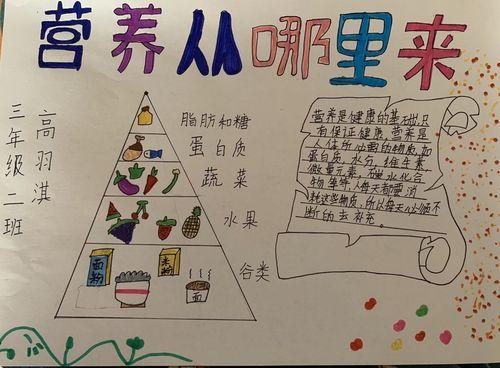 营养从哪里来
三年级二班
高羽淇
脂肪和糖
蛋白质
蔬菜
水果
谷类
面粉
米粉
面
营养是健康的基础,只
有保证健康,营养是
人体所必需的物质,如
蛋白质、水分、维生素、
微量元素、碳水化合
物等等,人每天都需消
耗这些物质,所以每天必须不
断的去补充。